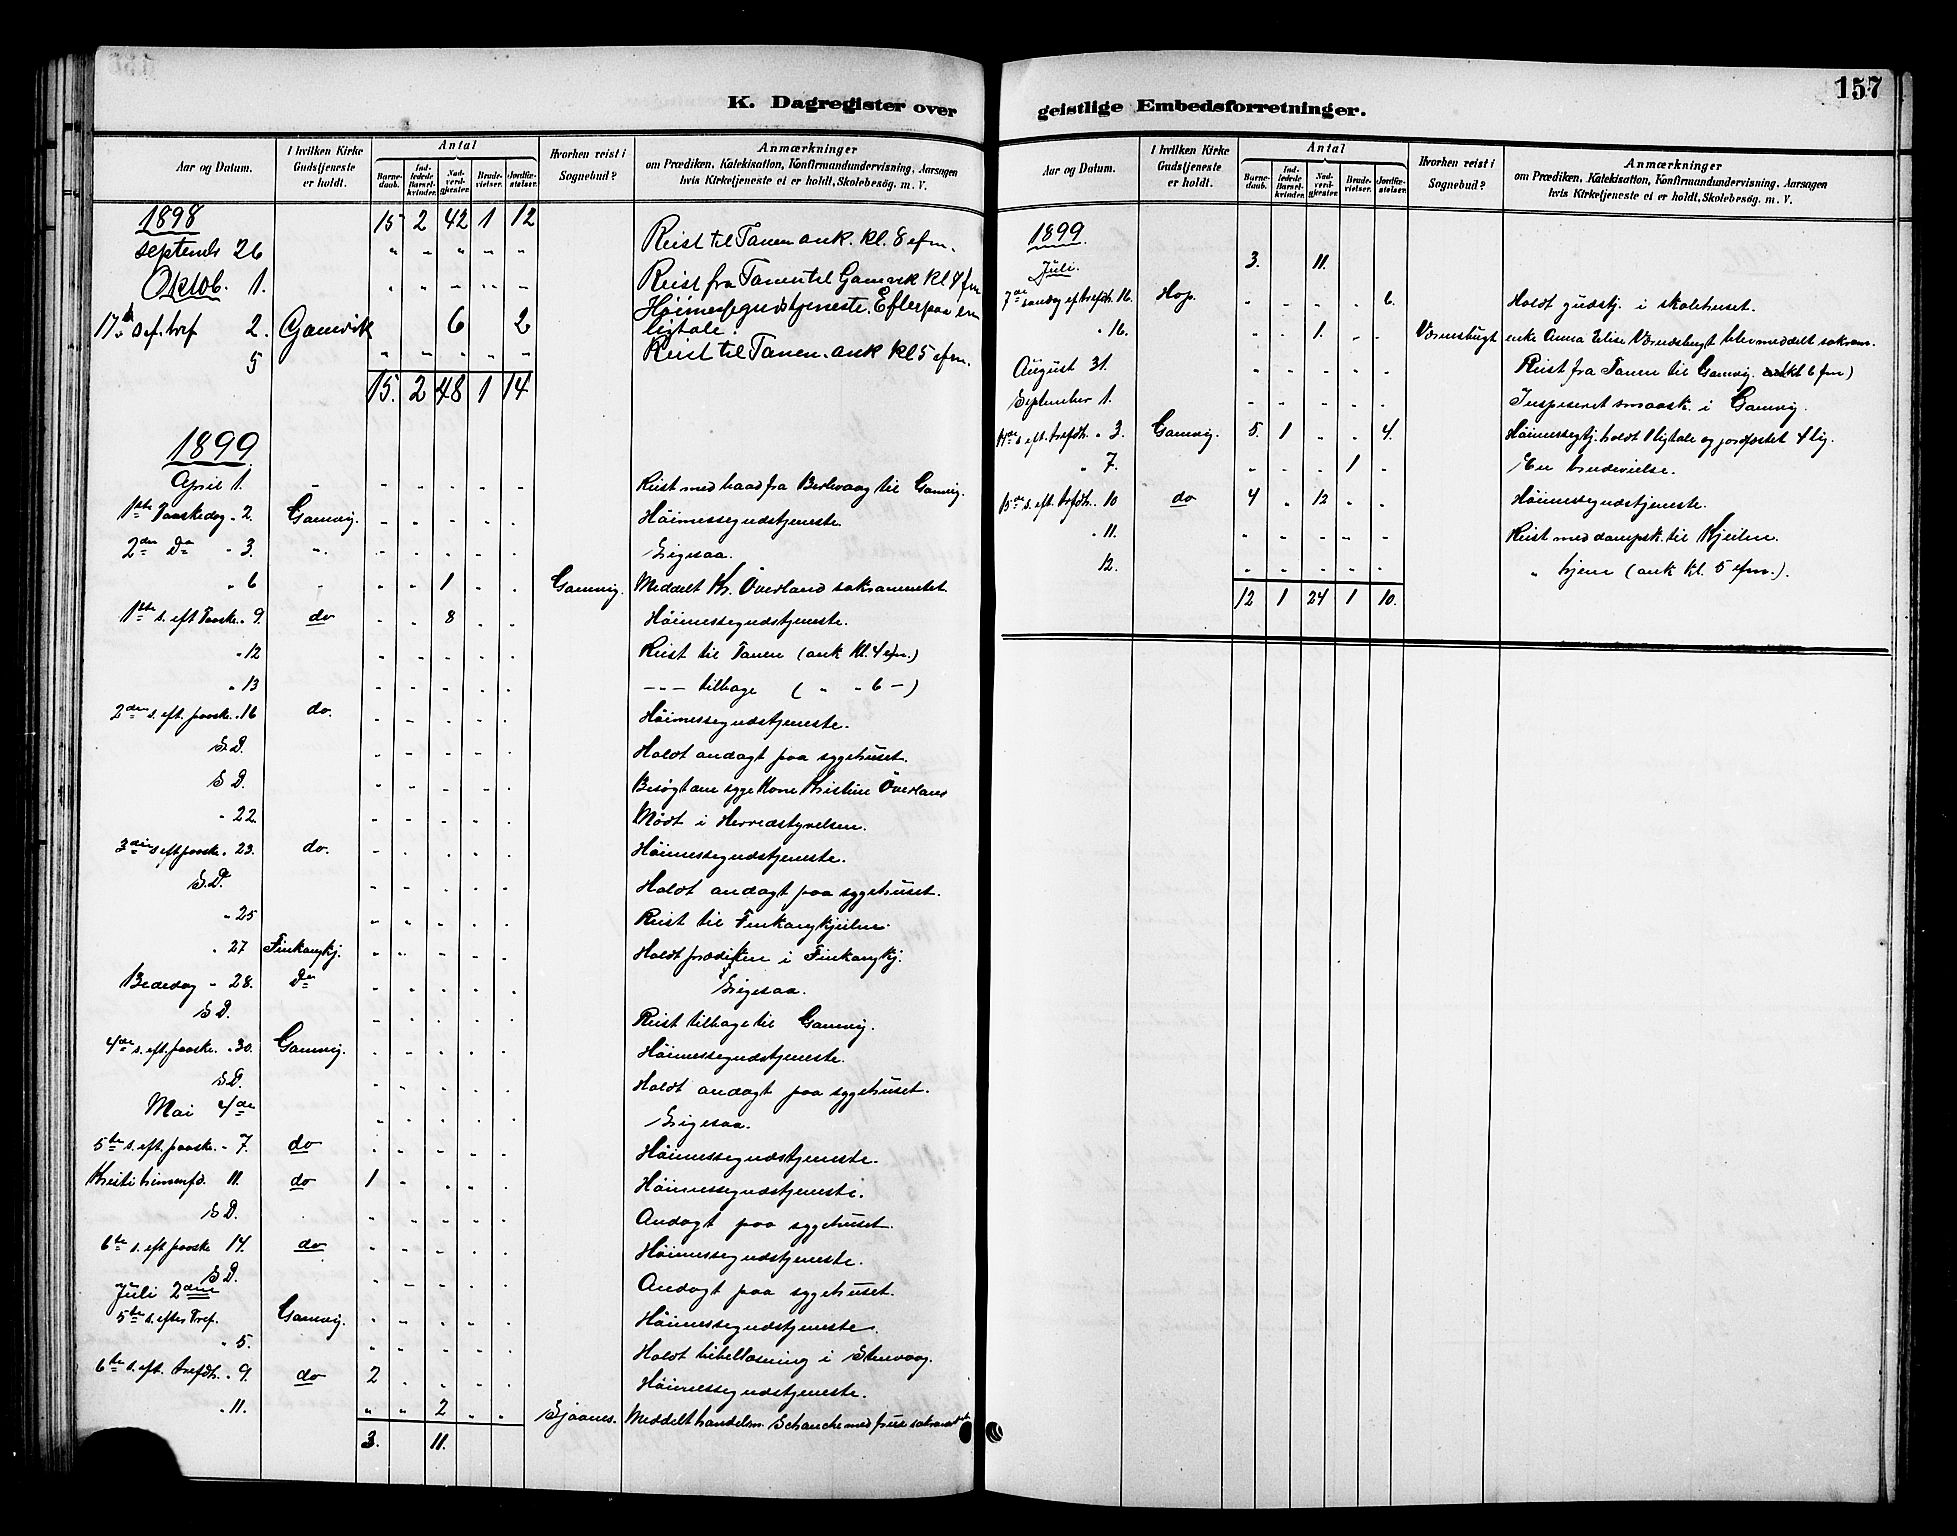 K. Dagregister over
Aar og Datum. I hvilken Kirke Gudstjeneste er holdt. Antal Barnedaab. Indledede Barselkvinder. Nadverdgjester. Brudevielser. Jordfæstelser. Hvorhen reist i Sognebud? Anmærkninger
om Prædiken, Katekisation, Konfirmandundervisning, Aarsagen
hvis Kirketjeneste ei er holdt, Skolebesøg. m. V.
1898 15 2 42 1 12
septemb 26 " " " " " Reist til Tanen ank. kl. 8 efm.
Oktob. 1. " " " " " Reist fra Tanen til Gamvik kl 4 efm
17 S ef. tref 2. Gamvik 6 2 Høimessegudstjeneste. Efterpaa en
ligtale.
5 " " " " " Reist til Tanen. ank kl 5 efm.
15. 2 48 1 14
1899
April 1. - - - - - - Reist med baad fra Berlevaag til Gamvig.
1ste Paaskedag " 2. Gamvig. - - - - - Høimessegudstjeneste.
2den Do " 3. " - - - - - Ligesaa.
" 6 " - - 1 - - Gamvig. Meddelt Kr. Överland sakramentet.
1ste s. eft Paaske. " 9. do - - 8 - - Høimessegudstjeneste.
" 12 - - - - - Reist til Tanen (ank kl. 4 efm.)
" 13 - - - - - -"- tilbage ( " " 6 -)
2den s. eft. paaske. " 16 do. - - - - - Høimessegudstjeneste.
S D. - - - - - Holdt andagt paa sygehuset.
S D. - - - - - Besøgt den syge Kone Kristine Överland
" 22. - - - - - Mødt i Herredstyrelsen.
3die s eft paaske. " 23. do. - - - - - Høimessegudstjeneste.
S.D. - - - - - Holdt andagt paa sygehuset.
" 25 - - - - - Reist til Finkongkjeilen.
" 27 Finkongkj. - - - - - Holdt prædiken i Finkongkj.
Bededag " 28. Do - - - - - Ligesaa.
S D. - - - - - Reist tilbage til Gamvig.
4de s. eft. paaske. " 30. Gamvig. - - - - - Høimessegudstjeneste.
S D. - - - - - Holdt andagt paa sygehuset.
Mai 4de - - - - - Ligesaa.
5te s. eft. paaske. " 7. do - - - - - Høimessegudstjeneste.
Kristi himmelfd. 11. do 1 - - - - Høimessegudstjeneste.
S D. - - - - - Andagt paa sygehuset.
6te s. eft paaske 14. do - - - - - Høimessegudstjeneste.
S D. - - - - - Andagt paa sygehuset.
Juli 2den
5te s. efter Tref. Gamvig. - - - - - Høimessegudstjeneste.
" 5. - - - - - Holdt bibellæsning i
6te s. eft. trefdh. " 9. do 2 - - - - Høimessegudstjeneste.
" 11. " " 2 " " Sjaanes. Meddelt handelsm. Schanche med frue sakramentet
3. 11.
157
geistlige Embedsforretninger.
Aar og Datum. I hvilken Kirke Gudstjeneste er holdt. Antal Barnedaab. Indledede Barselkvinder. Nadverdgjester. Brudevielser. Jordfæstelser. Hvorhen reist i Sognebud? Anmærkninger
om Prædiken, Katekisation, Konfirmandundervisning, Aarsagen
hvis Kirketjeneste ei er holdt, Skolebesøg. m. V.
1899.
Juli. 3. 11.
7de søndag ef. trefdh. 16. Hop. - - - - 6. Holdt gudstj. i skolehuset.
" 16. - - 1. - - enke Anna Elise blev meddelt sakram.
August 31. - - - - - Reist fra Tanen til Gamvig. ank kl 6 efm)
September 1. - - - - - Inspiseret smaask. i Gamvig.
14de s eft. trefdh. " 3. Gamvig. 5. 1 - - 4. Høimessegtj. holdt 1 ligtale og jordfæstet 4 lig.
" 7. - - - 1 - En brudevielse.
15de s. eft. trefdh. 10 do 4 " 12 - - Høimessegudstjeneste.
" 11. - - - - - Reist med dampsk. til Kjeilen.
12. - - - - - " hjem (ank kl. 5 efm.).
12 1 24 1 10.